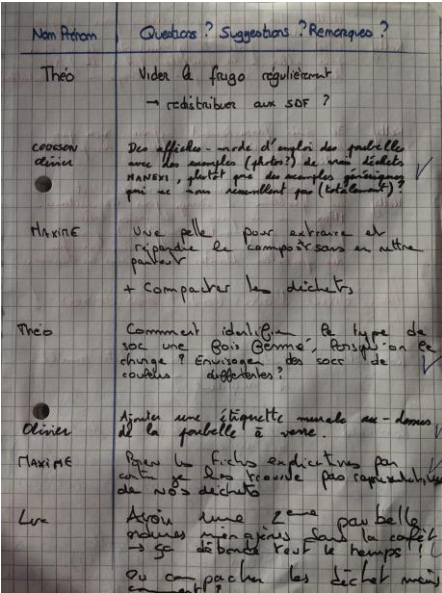 Nom Prénom Questions ? Suggestions ? Remarques ?
Théo Vider le frigo régulièrement
→ redistribuer aux SDF ?
Olivier Des affiches - mode d'emploi des poubelles
avec des exemples (photos?) de vrais déchets
MANEXI, plutôt que des exemples génériques
qui ne nous ressemblent pas (totalement) ?
MAXIME Une pelle pour extraire et
répandre le compost sans en mettre
partout
+ Compacter les déchets
Théo Comment identifier le type de
sac une fois fermé, lorsqu'on le
change ? Envisager des sacs de
couleurs différentes ?
Olivier Ajouter une étiquette murale au-dessus
de la poubelle à verre.
MAXIME les fiches explicatives par
contre je les trouve pas
de nos déchets
Avoir une 2eme poubelle
ordures ménagères dans la cafèt
→ ça déborde tout le temps !
Ou compacter les déchets mais
comment ?